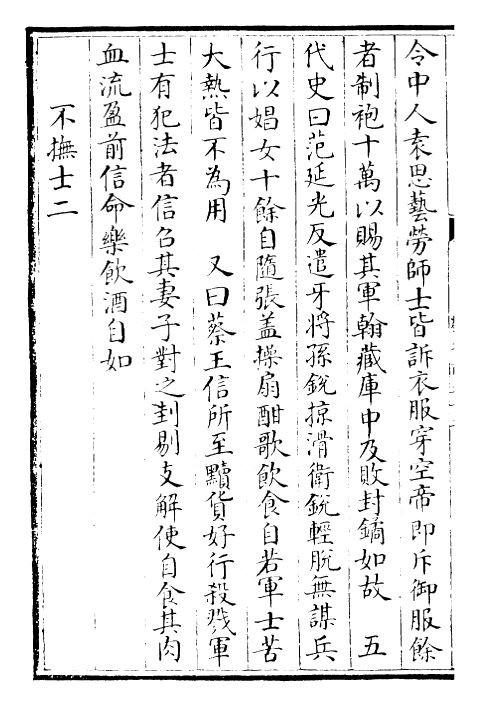 令中人袁思藝勞師士皆訴衣服穿空帝即斥御服餘
者制袍十萬以賜其軍翰藏庫中及敗封鐍如故　五
代史曰范延光反遣牙將孫銳掠滑衛銳輕脫無謀兵
行以娼女十餘自隨張盖操扇酣歌飲食自若軍士苦
大熱皆不為用　又曰蔡王信所至黷貨好行殺戮軍
士有犯法者信召其妻子對之刲剔支解使自食其肉
血流盈前信命樂飲酒自如
不撫士二